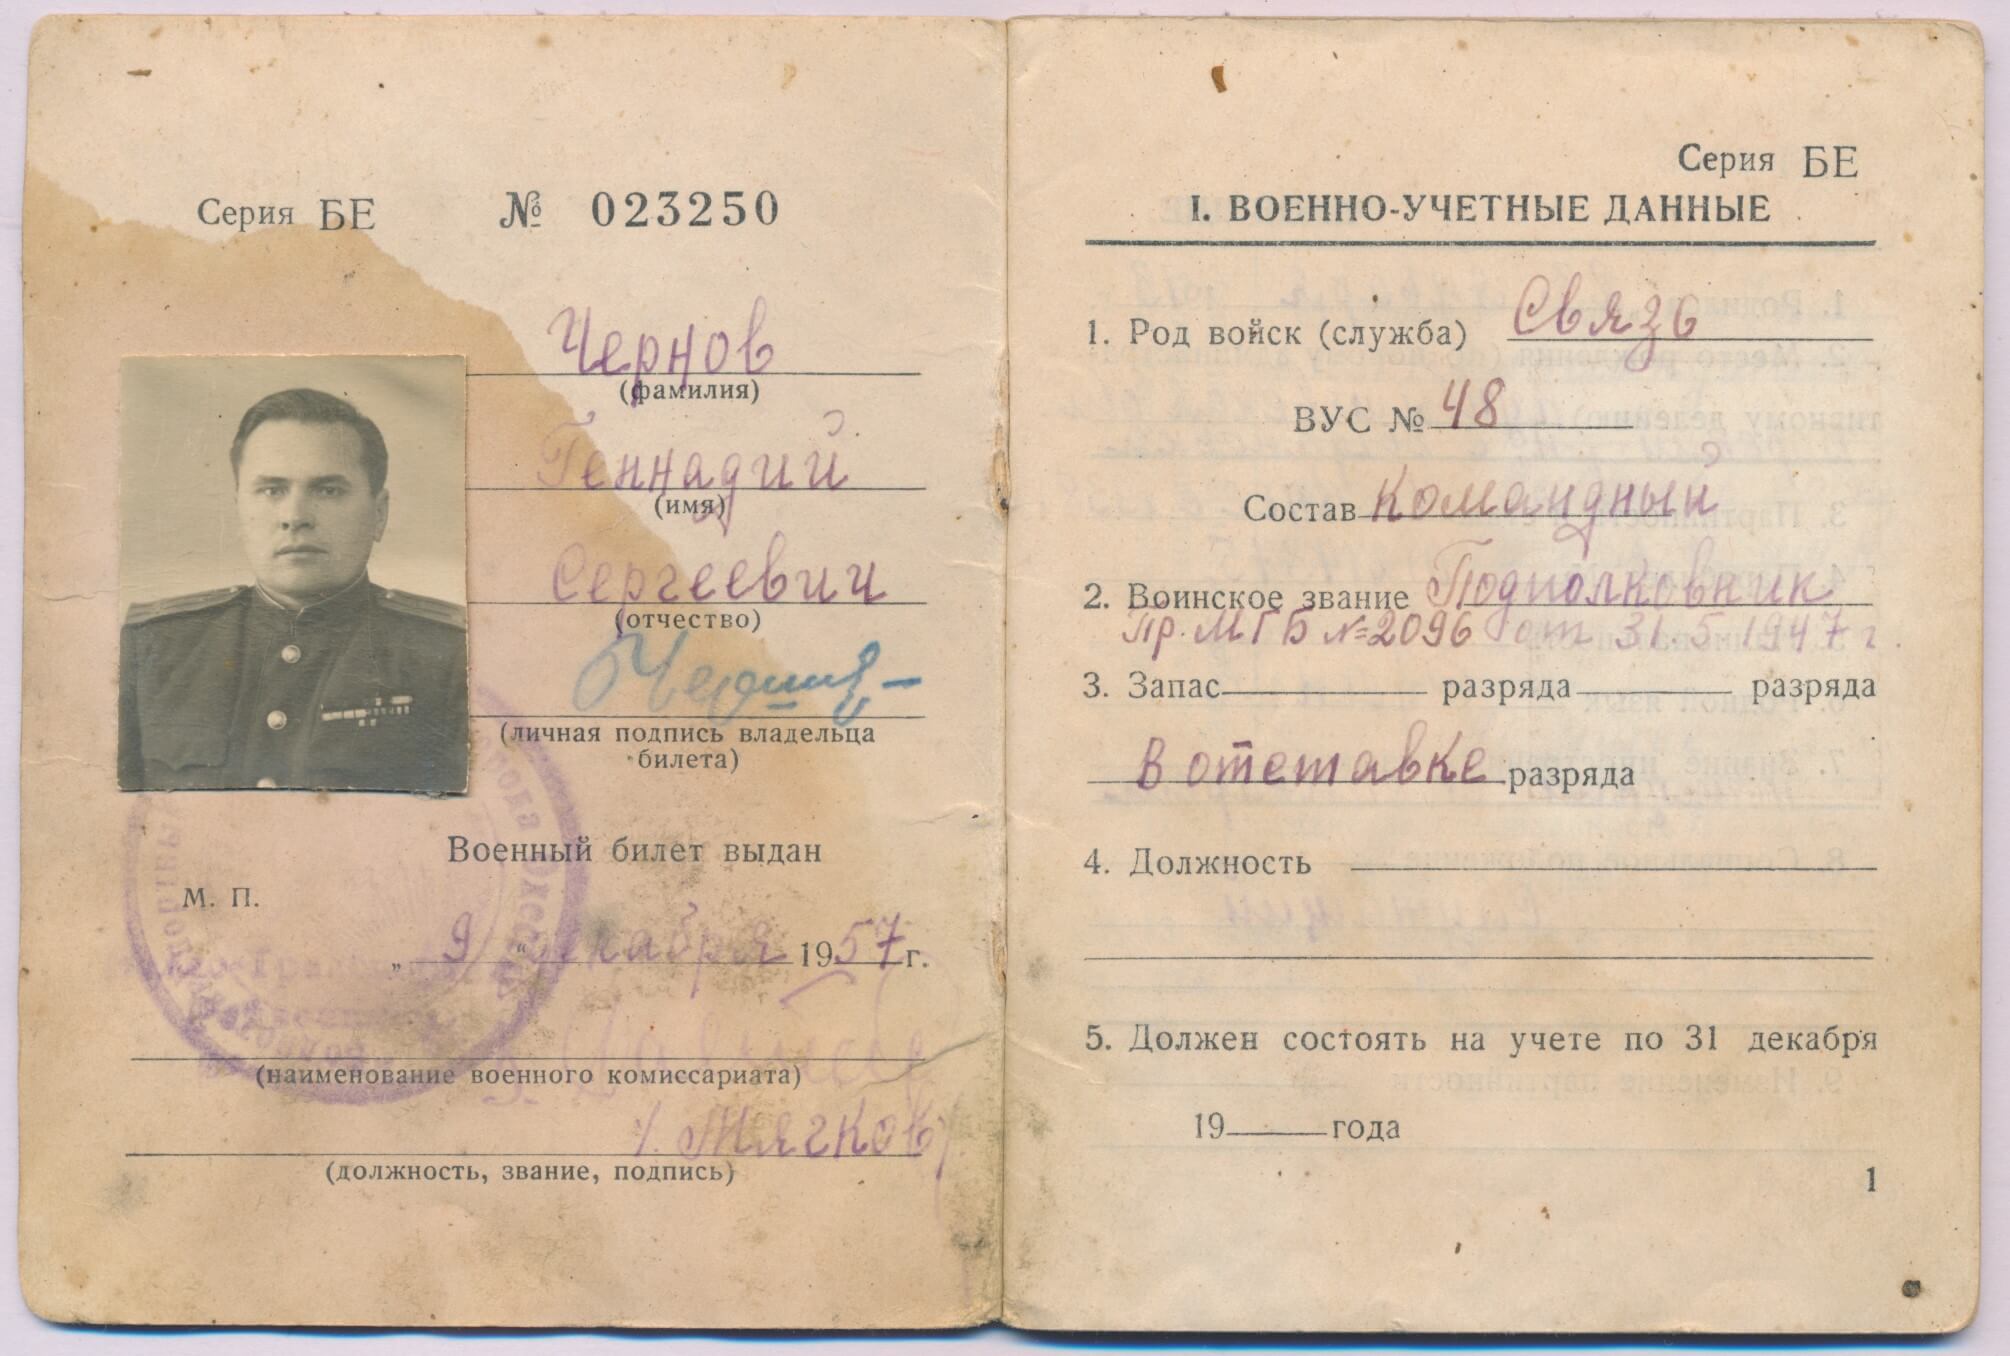 Серия БЕ № 023250
Чернов
(фамилия)
Геннадий
(имя)
Сергеевич
(отчество)
(личная подпись владельца
билета)
Военный билет выдан
М. П.
„ 9 “ декабря 1957 г.
(наименование военного комиссариата)
/. Мягков/.
(должность, звание, подпись)
Серия БЕ
I. ВОЕННО-УЧЕТНЫЕ ДАННЫЕ
1. Род войск (служба) Связь
ВУС № 48
Состав Командный
2. Воинское звание Подполковник
Пр. МГБ № 2096 от 31.5 1947 г.
3. Запас разряда разряда
в отставке разряда
4. Должность
5. Должен состоять на учете по 31 декабря
19 года
1